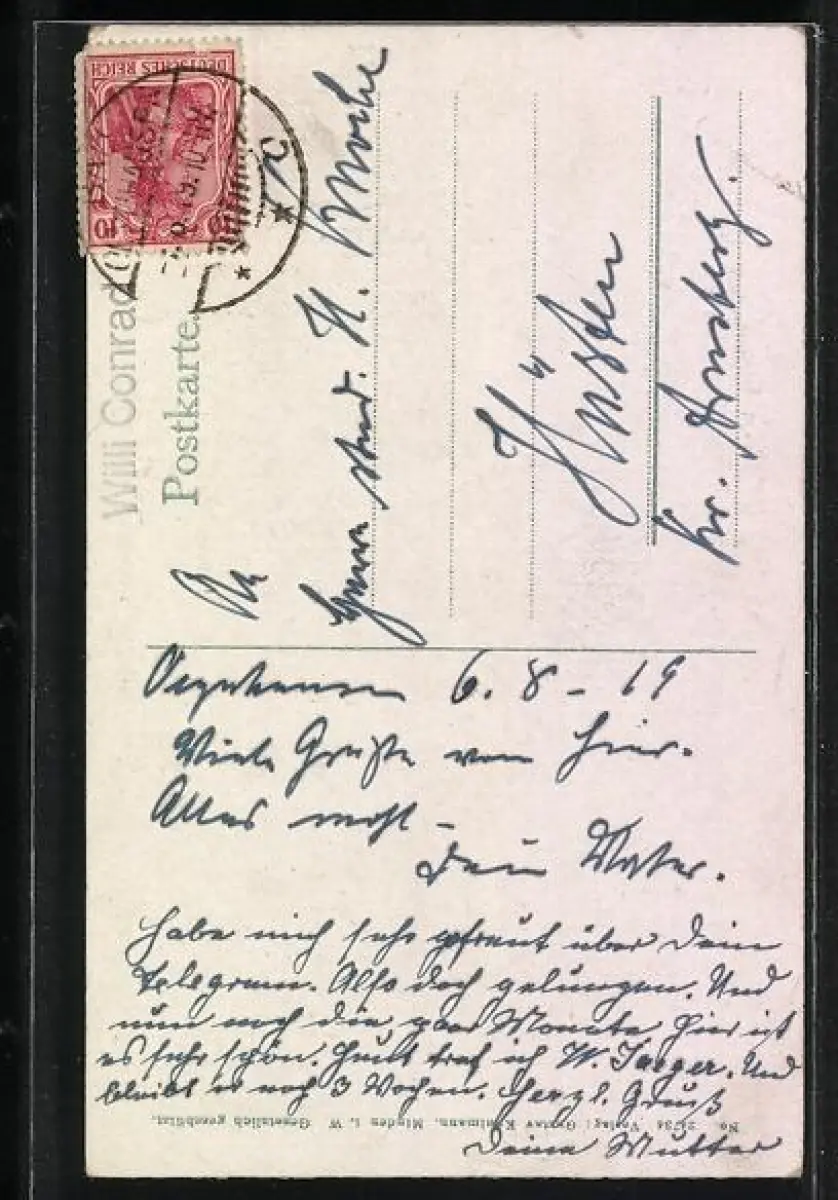 DEUTSCHES REICH
10 10
Willi Conrad
Postkarte
An
Herrn stud. H.
Hüsten
Kr. Arnsberg.
Oeynhausen 6. 8 - 19
Viele Grüße von hier.
Alles wohl -
Dein Vater.
Habe mich sehr gefreut über Dein
Telegram. Also doch gelungen. Und
nun noch die paar Monate. Hier ist
es sehr schön. Heut traf ich W. Jaeger. Und
bleibt er noch 3 Wochen. Herzl. Gruß
Deine Mutter
No. 24734 Verlag: Gustav Kuhlmann, Minden i. W Gesetzlich geschützt.